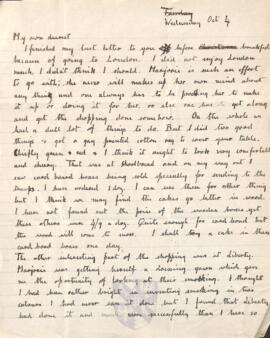 Tuesday
Wednesday Oct 4
My own dearest
I finished my last letter to you before breakfast
because of going to London. I did not enjoy London
much, I didn't think I should. Marjorie is such an effort
to go with, she never will make up her own mind about
any thing and one always has to be pushing her to make
it up or doing it for her, or else one has to get along
and get the shopping done somehow. On the whole we
had a dull lot of things to do. But I did two good
things I got a gay printed cotton rug to cover your table.
Chiefly green & red & I think it ought to look very comfortable
and cheery. That was at Woodlands and on my way out I
saw card board boxes being sold specially for sending to the
troops. I have ordered 1 doz. I can use them for other things
but I think we may find the cakes go better in wood.
I have not found out the price of the wooden boxes yet
these others were 4/9 a doz. Quite enough for card board but
the wood will come to more. I shall try a cake in these
card board boxes one day.
The other interesting part of the shopping was at Liberty.
Marjorie was getting herself a dressing gown which gave
me the opportunity of looking at their smocking. I thought
I had been rather bright in inventing smocking in two
colours I had never seen it done but I found that Liberty
had done it and even more successfully than I have so